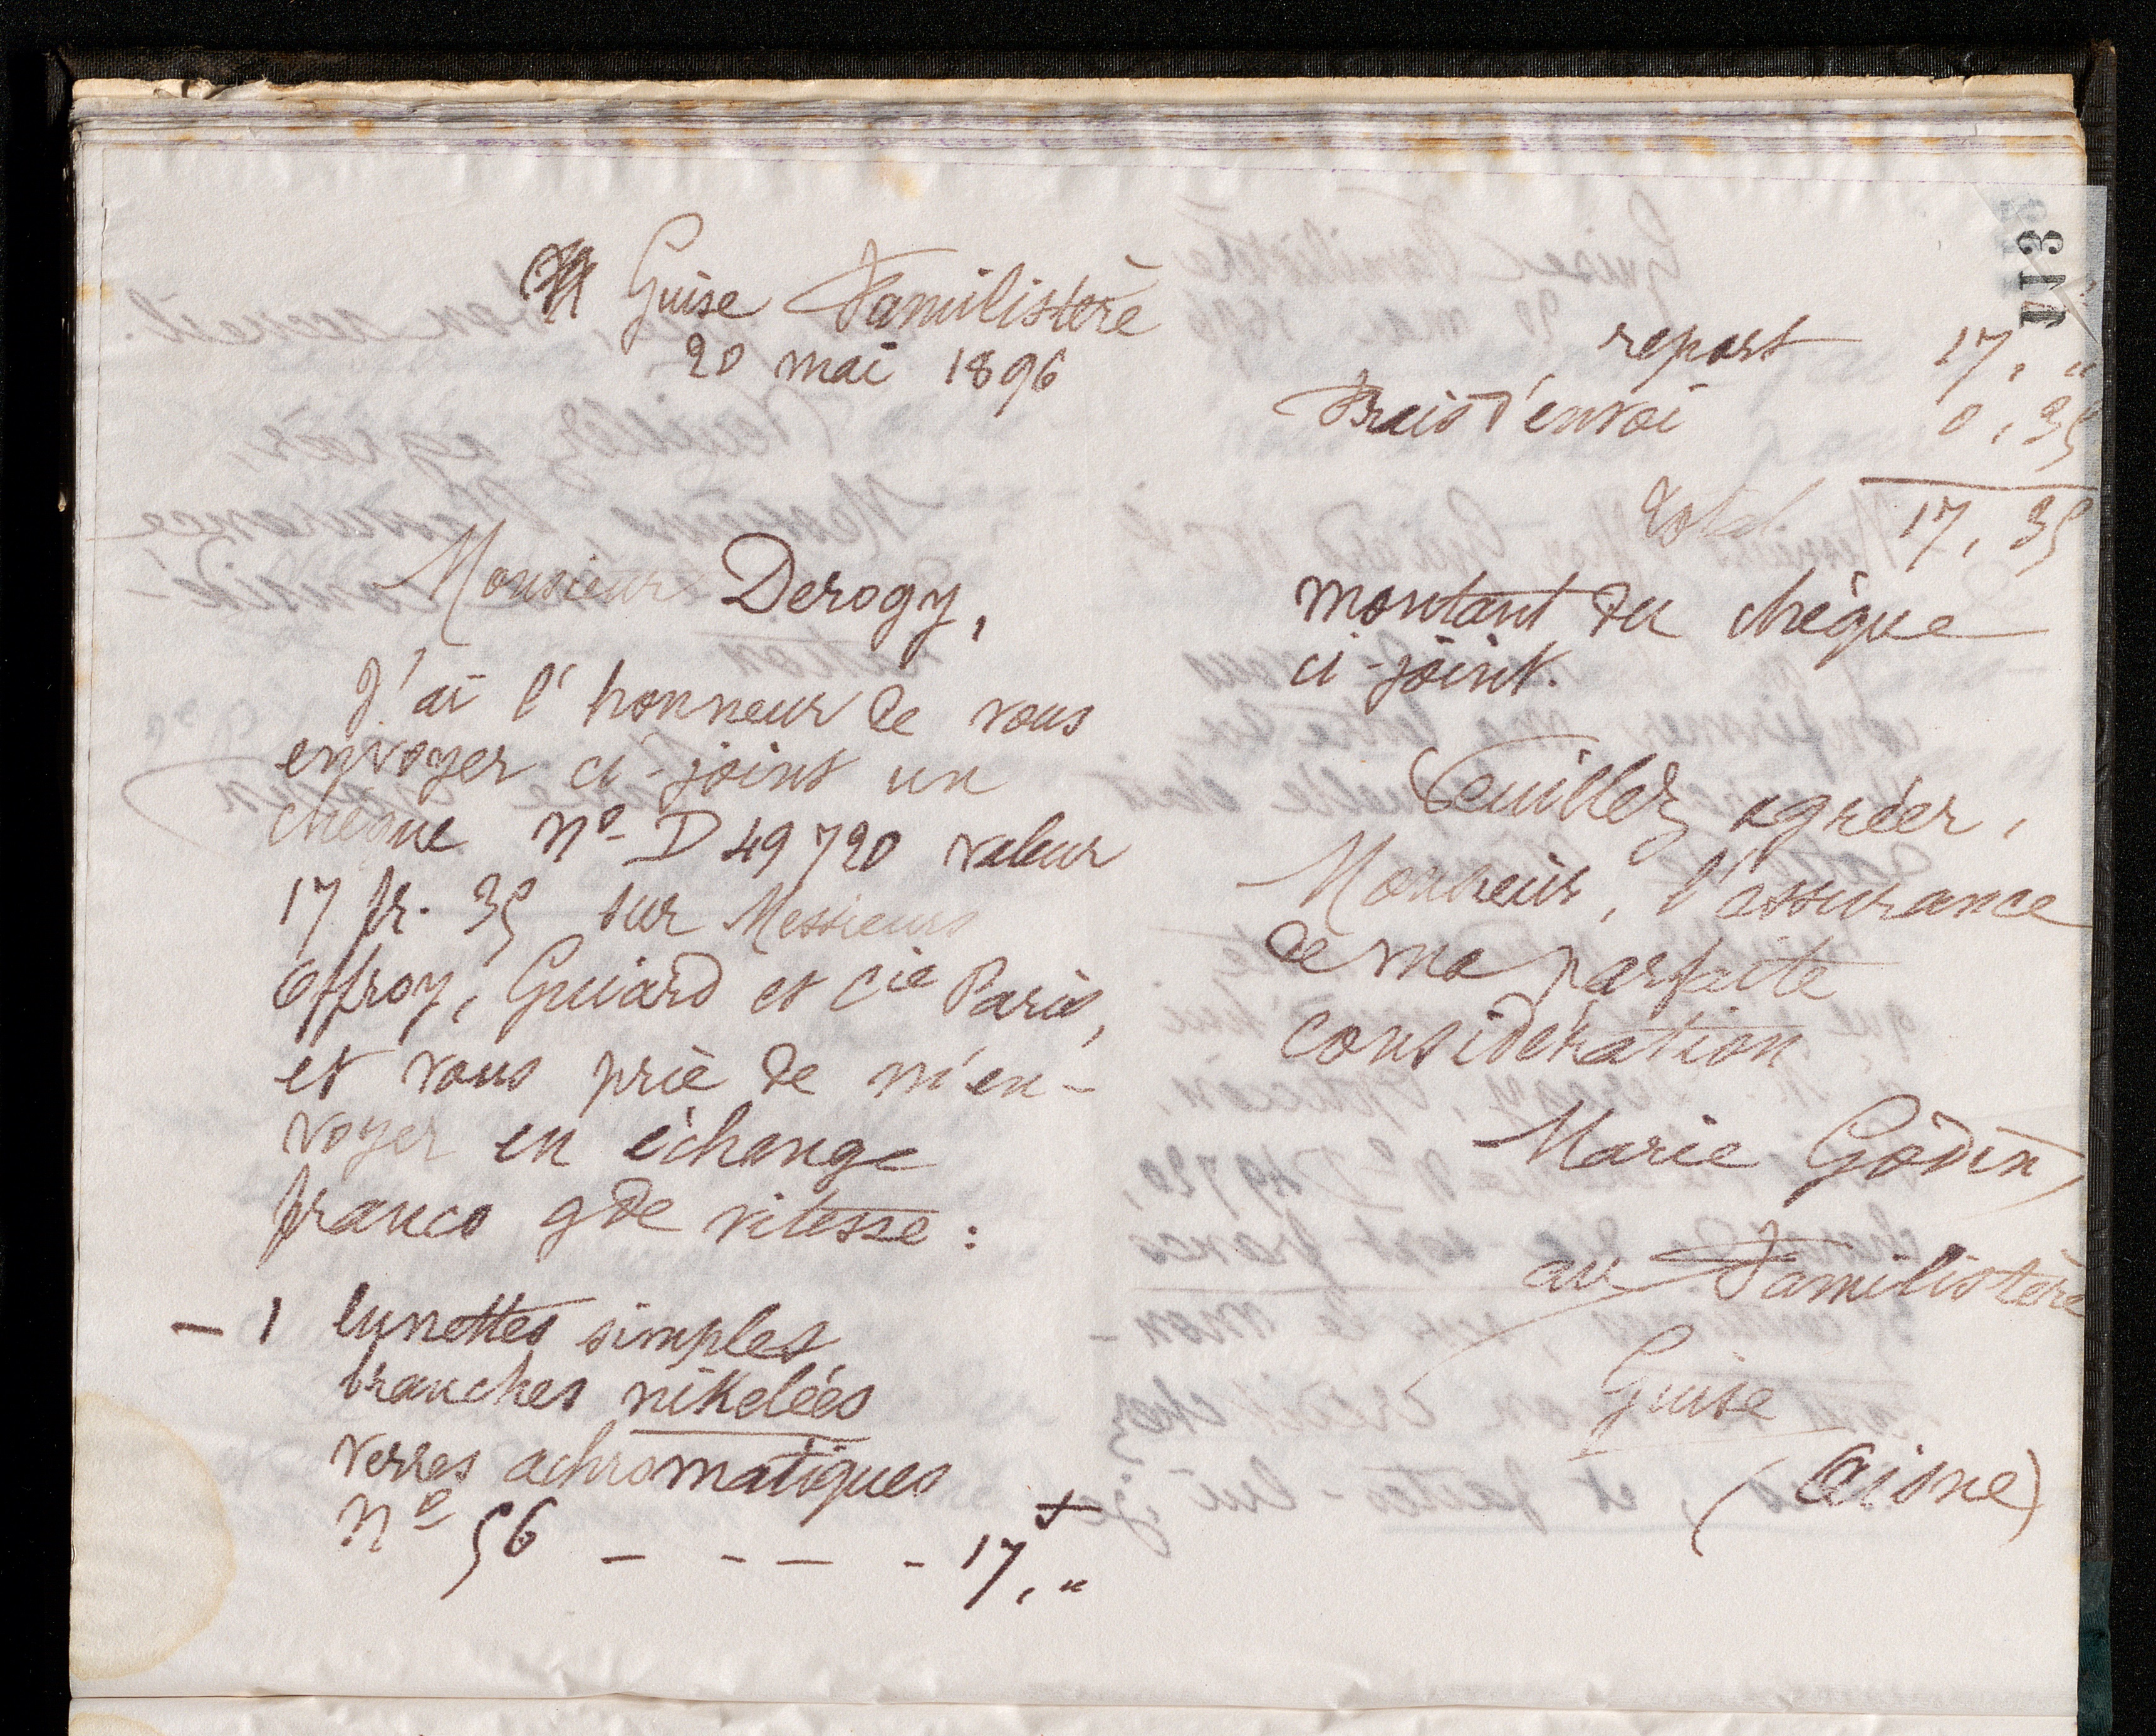 Guise Familistère
20 mai 1896
Monsieur Derogy,
J'ai l'honneur de vous
envoyer ci-joint un
chèque nº D 49720 valeur
17 fr. 35 sur Messieurs
Offroy, Guiard et Cie Paris,
et vous prie de m'en-
voyer en échange
franco gde vitesse :
— 1 lunettes simples
branches nikelées
verres achromatiques
nº 56 - - - - 17f, "
113
report 17, "
Frais d'envoi 0,35
Total 17,35
montant du chèque
ci-joint.
Veuillez agréer,
Monsieur, l'assurance
de ma parfaite
considération
Marie Godin
au Familistère
Guise
(Aisne)